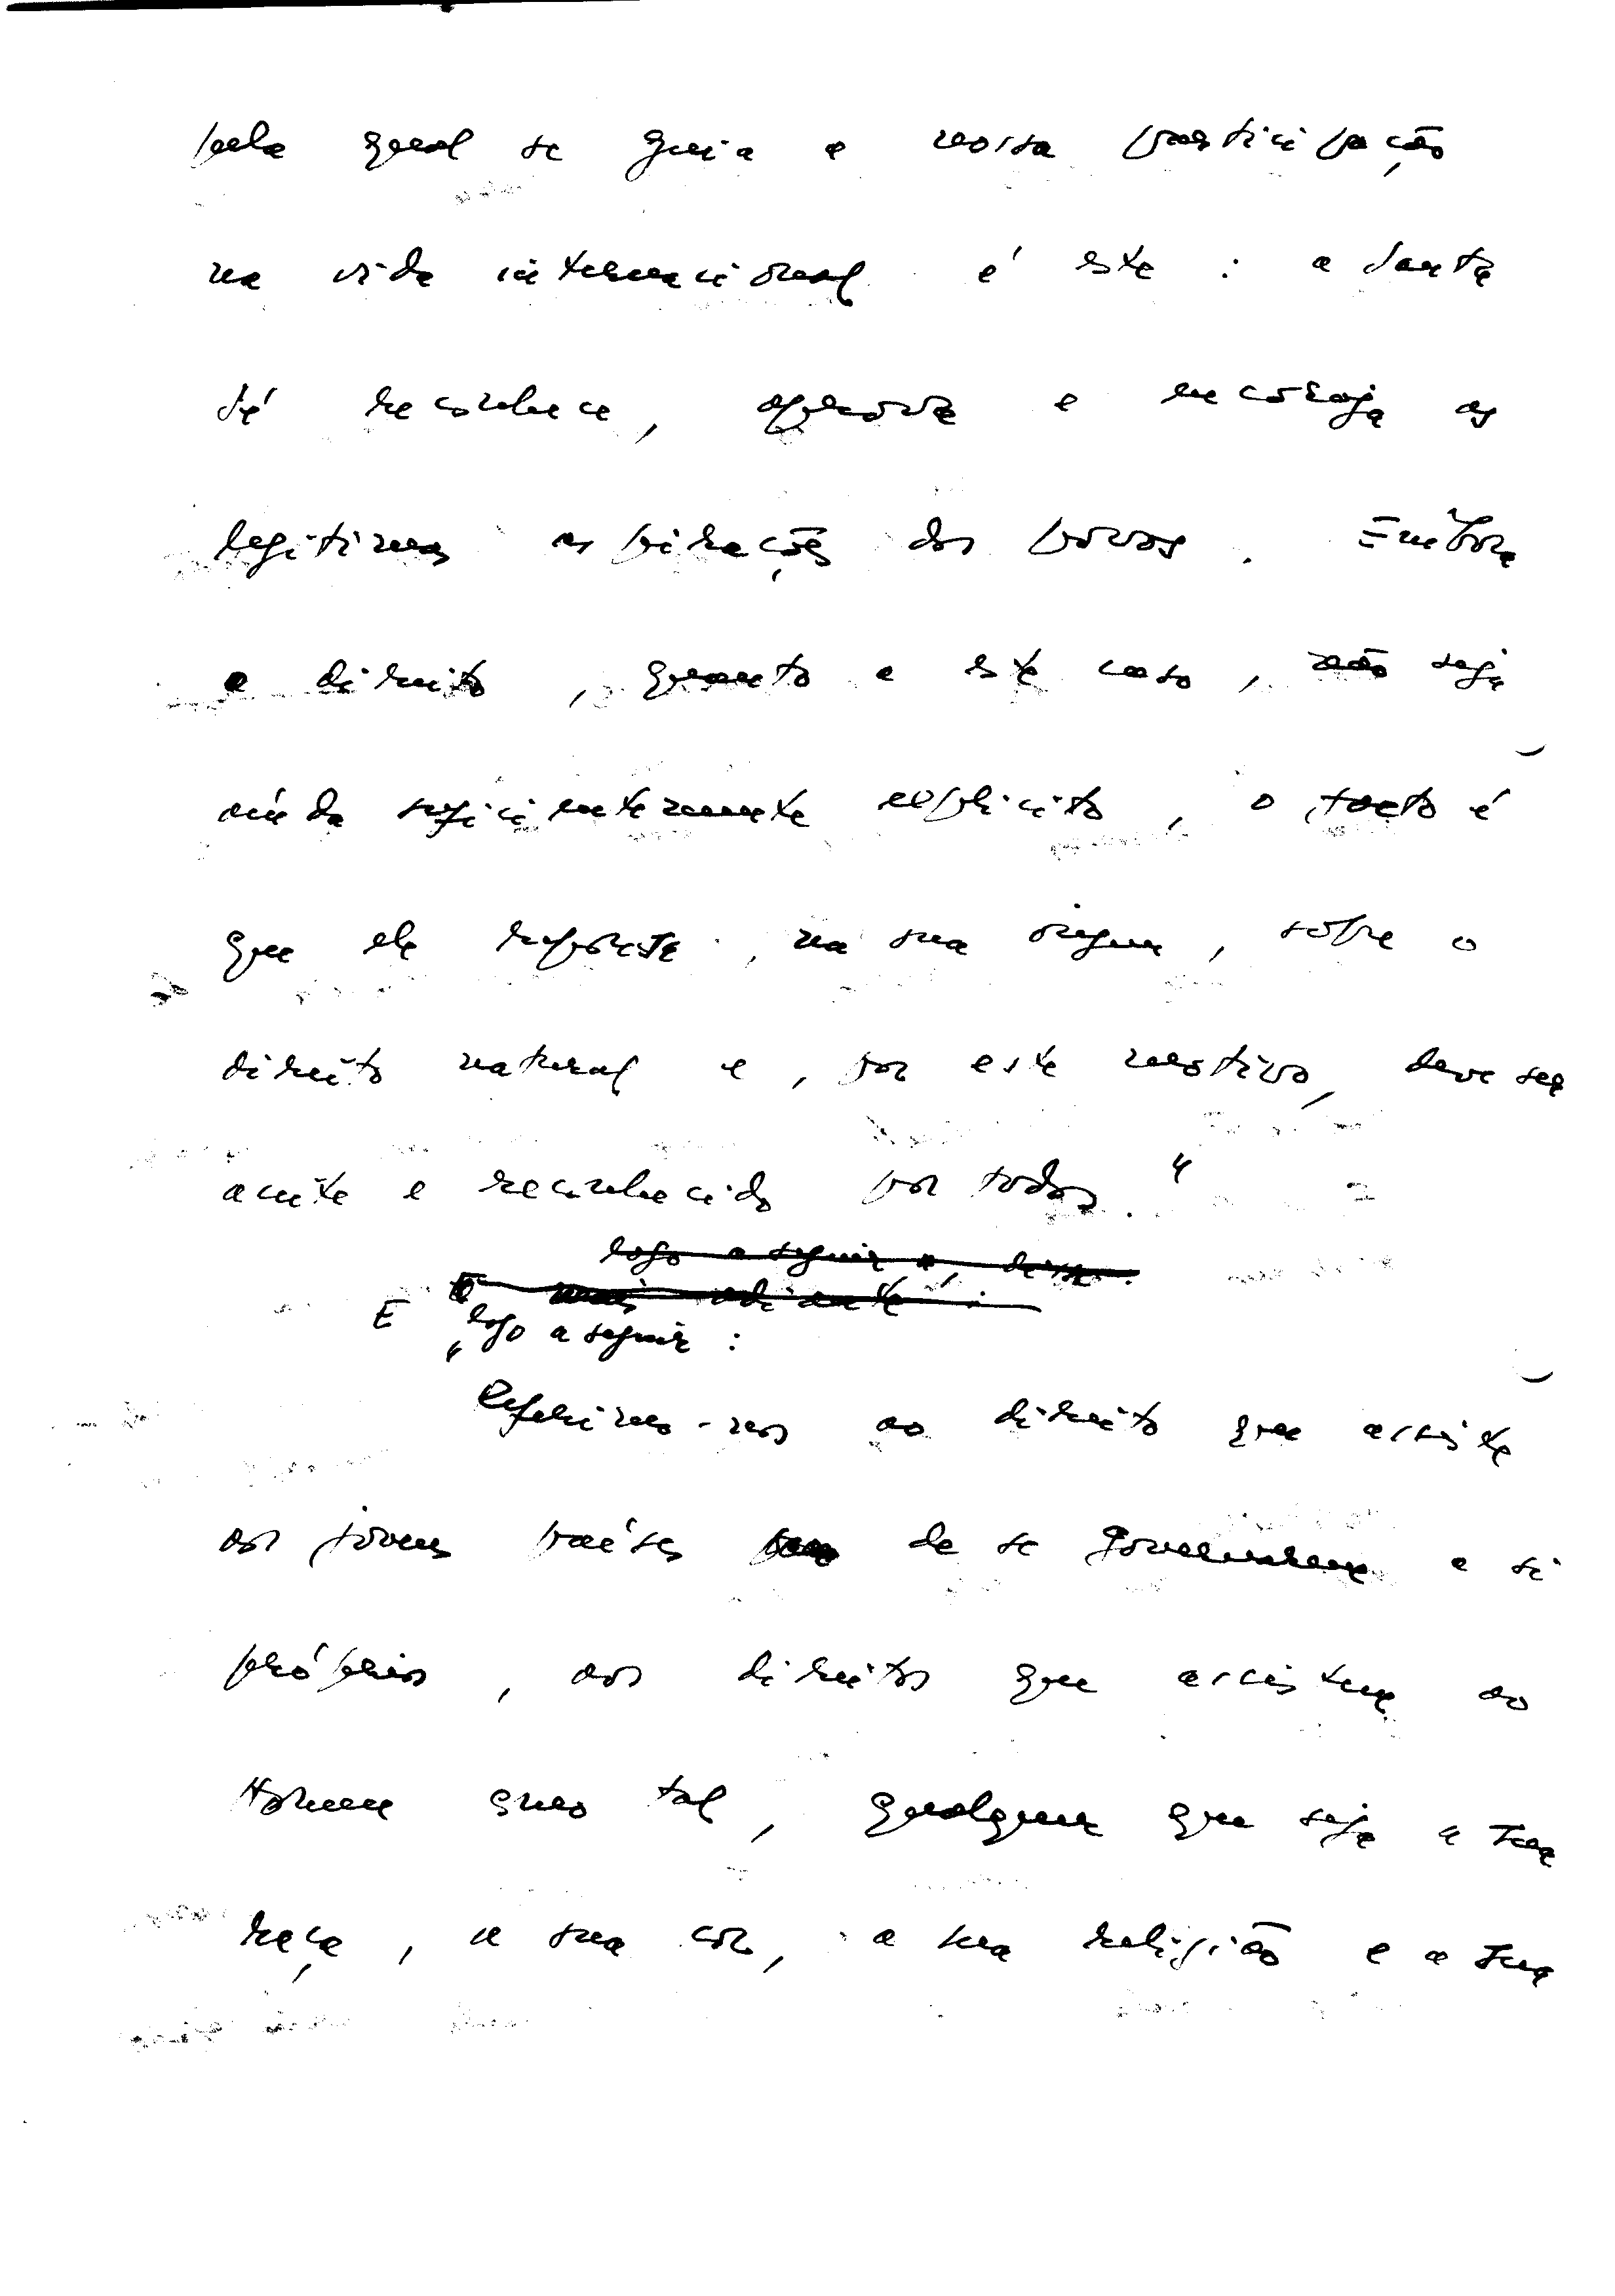 pela qual se guia a nossa participação
na vida internacional é este : a Santa
Sé reconhece, aprova e encoraja as
legítimas aspirações dos povos. Embora
o direito, quanto a este caso, não seja
ainda suficientemente explícito, o facto é
que ele repousa, na sua origem, sobre o
direito natural e, por este motivo, deve ser
aceite e reconhecido por todos."
logo a seguir a, disse:
E mais adiante:
E logo a seguir :
"Referimo-nos ao direito que assiste
aos jovens países de se governarem a si
próprios, aos direitos que assistem ao
Homem quo tal, qualquer que seja a sua
raça, a sua cor, a sua religião e a sua